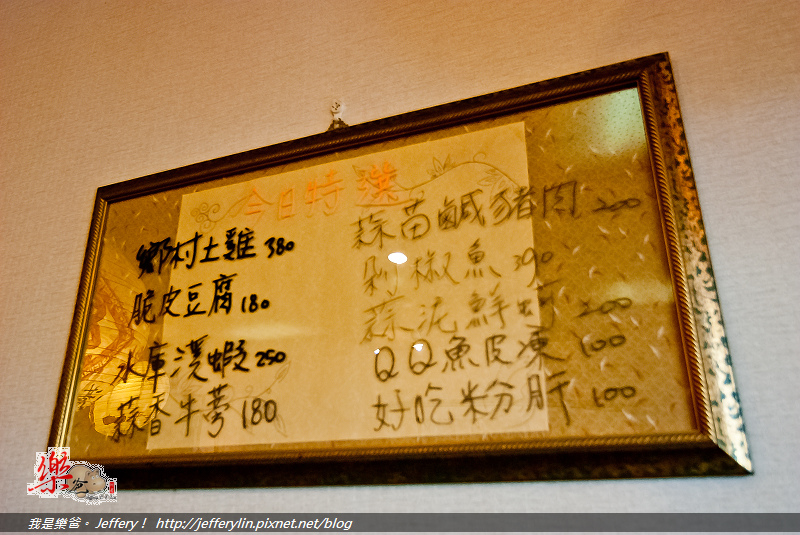 今日特選
鄉村土雞 380
脆皮豆腐 180
水庫溪蝦 250
蒜香牛蒡 180
蒜苗鹹豬肉 200
剁椒魚 390
蒜泥鮮蚵 200
QQ魚皮凍 100
好吃粉肝 100
樂爸
我是樂爸。Jeffery! http://jefferylin.pixnet.net/blog